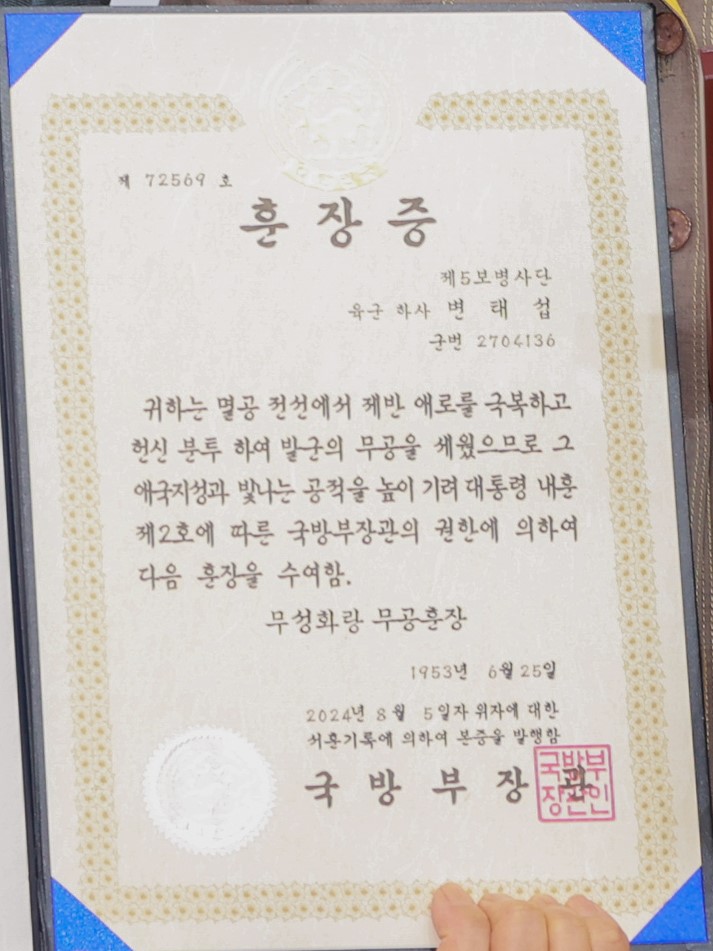 제 72569 호
훈장증
제5보병사단
육군 하사 변 태 섭
군번 2704136
귀하는 멸공 전선에서 제반 애로를 극복하고
헌신 분투 하여 발군의 무공을 세웠으므로 그
애국지성과 빛나는 공적을 높이 기려 대통령 내훈
제2호에 따른 국방부장관의 권한에 의하여
다음 훈장을 수여함.
무성화랑 무공훈장
1953년 6월 25일
2024년 8월 5일자 위자에 대한
서훈기록에 의하여 본증을 발행함
국 방 부 장 관
국방부
장관인